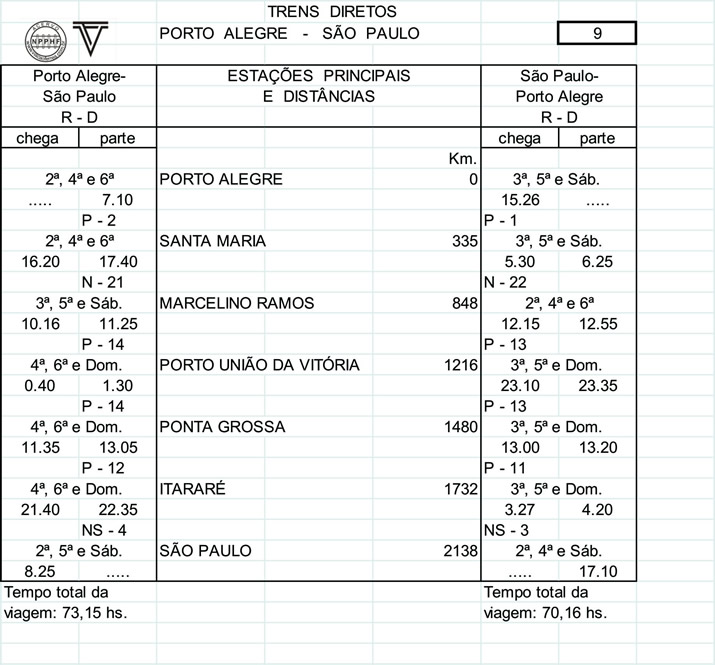 TRENS DIRETOS
NPPHF
PORTO ALEGRE - SÃO PAULO 9
Porto Alegre- ESTAÇÕES PRINCIPAIS São Paulo-
São Paulo E DISTÂNCIAS Porto Alegre
R - D R - D
chega parte chega parte
Km.
2ª, 4ª e 6ª PORTO ALEGRE 0 3ª, 5ª e Sáb.
..... 7.10 15.26 .....
P - 2 P - 1
2ª, 4ª e 6ª SANTA MARIA 335 3ª, 5ª e Sáb.
16.20 17.40 5.30 6.25
N - 21 N - 22
3ª, 5ª e Sáb. MARCELINO RAMOS 848 2ª, 4ª e 6ª
10.16 11.25 12.15 12.55
P - 14 P - 13
4ª, 6ª e Dom. PORTO UNIÃO DA VITÓRIA 1216 3ª, 5ª e Dom.
0.40 1.30 23.10 23.35
P - 14 P - 13
4ª, 6ª e Dom. PONTA GROSSA 1480 3ª, 5ª e Dom.
11.35 13.05 13.00 13.20
P - 12 P - 11
4ª, 6ª e Dom. ITARARÉ 1732 3ª, 5ª e Dom.
21.40 22.35 3.27 4.20
NS - 4 NS - 3
2ª, 5ª e Sáb. SÃO PAULO 2138 2ª, 4ª e Sáb.
8.25 ..... ..... 17.10
Tempo total da Tempo total da
viagem: 73,15 hs. viagem: 70,16 hs.